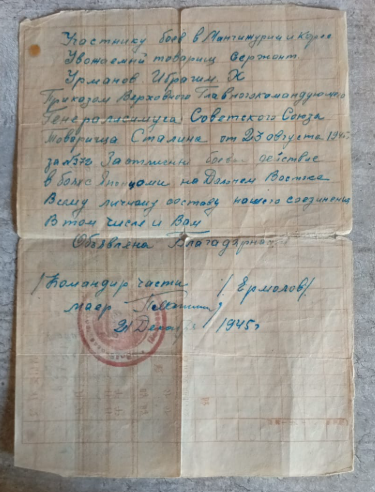 Участнику боев в Манчжурии и Корее
Уважаемый товарищ сержант
Урманов Ибрагим Х
Приказом Верховного Главнокомандующего
Генералисимуса Советского Союза
Товарища Сталина от 23 августа 1945
за №372 За отличные боевые действие
в боях с Японцами на Дальнем Востоке
Всему личному составу нашего соединения
В том числе и Вам
Объявлена Благодарность
/Командир части /Ермолов/
маер
21 1945 г